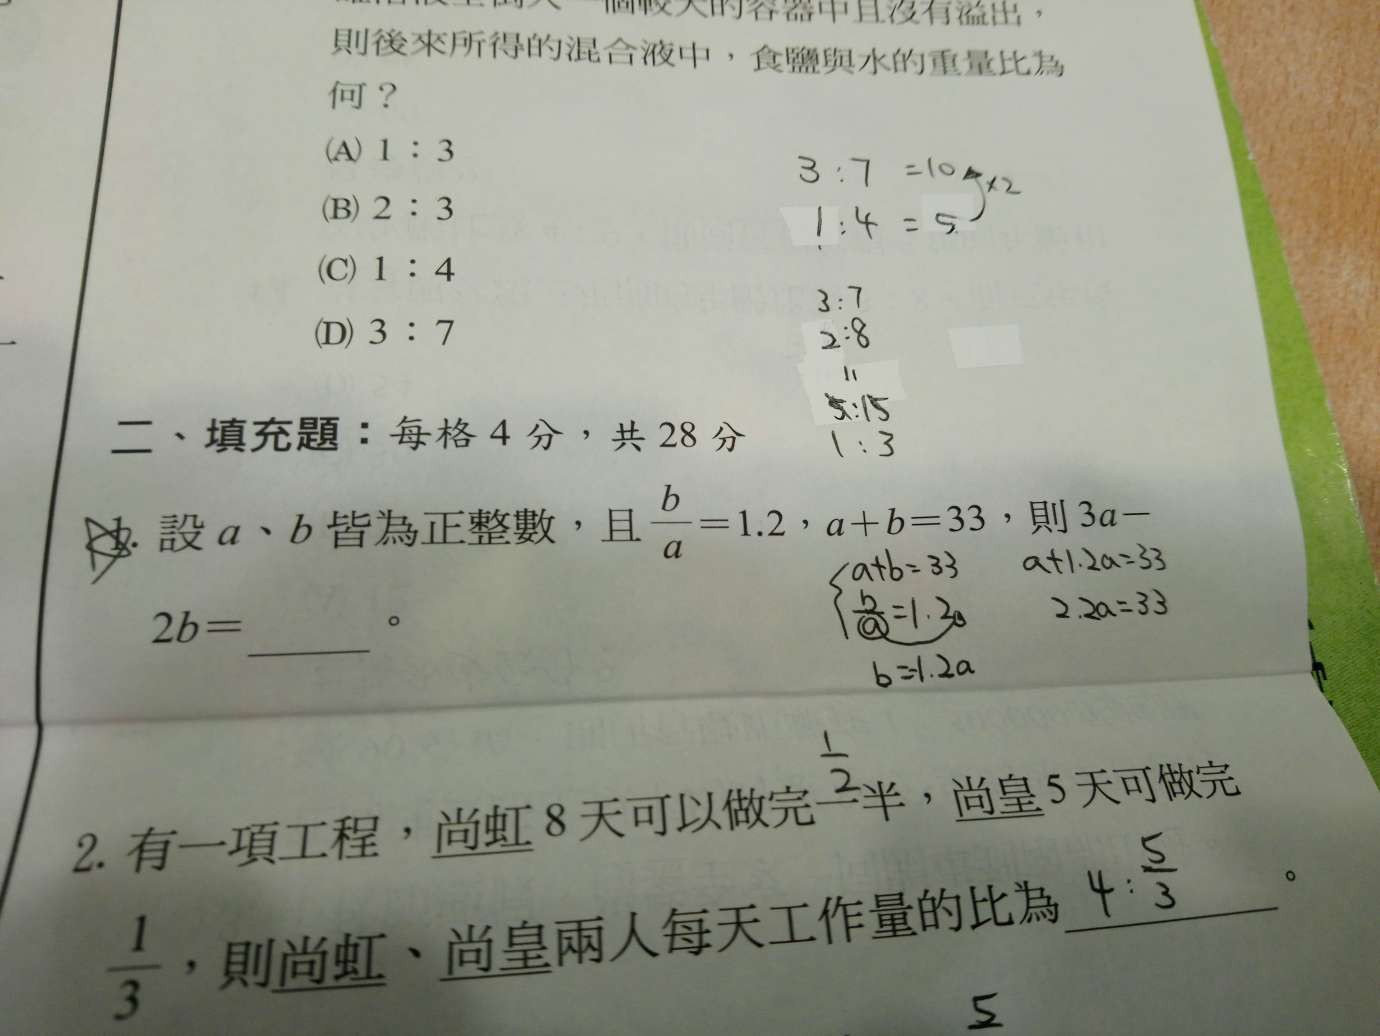 一個較大的容器中且沒有溢出，
則後來所得的混合液中，食鹽與水的重量比為
何？
(A) 1：3
(B) 2：3
(C) 1：4
(D) 3：7
3:7 =10 ×2
1:4 = 5
3:7
2:8
"
5:15
1:3
二、填充題：每格 4 分，共 28 分
1. 設 a、b 皆為正整數，且 b/a＝1.2，a＋b＝33，則 3a－
2b＝____。
a+b=33
b/a=1.2
b=1.2a
a+1.2a=33
2.2a=33
1/2
2. 有一項工程，尚虹 8 天可以做完一半，尚皇 5 天可做完
1/3，則尚虹、尚皇兩人每天工作量的比為 4:5/3。
5